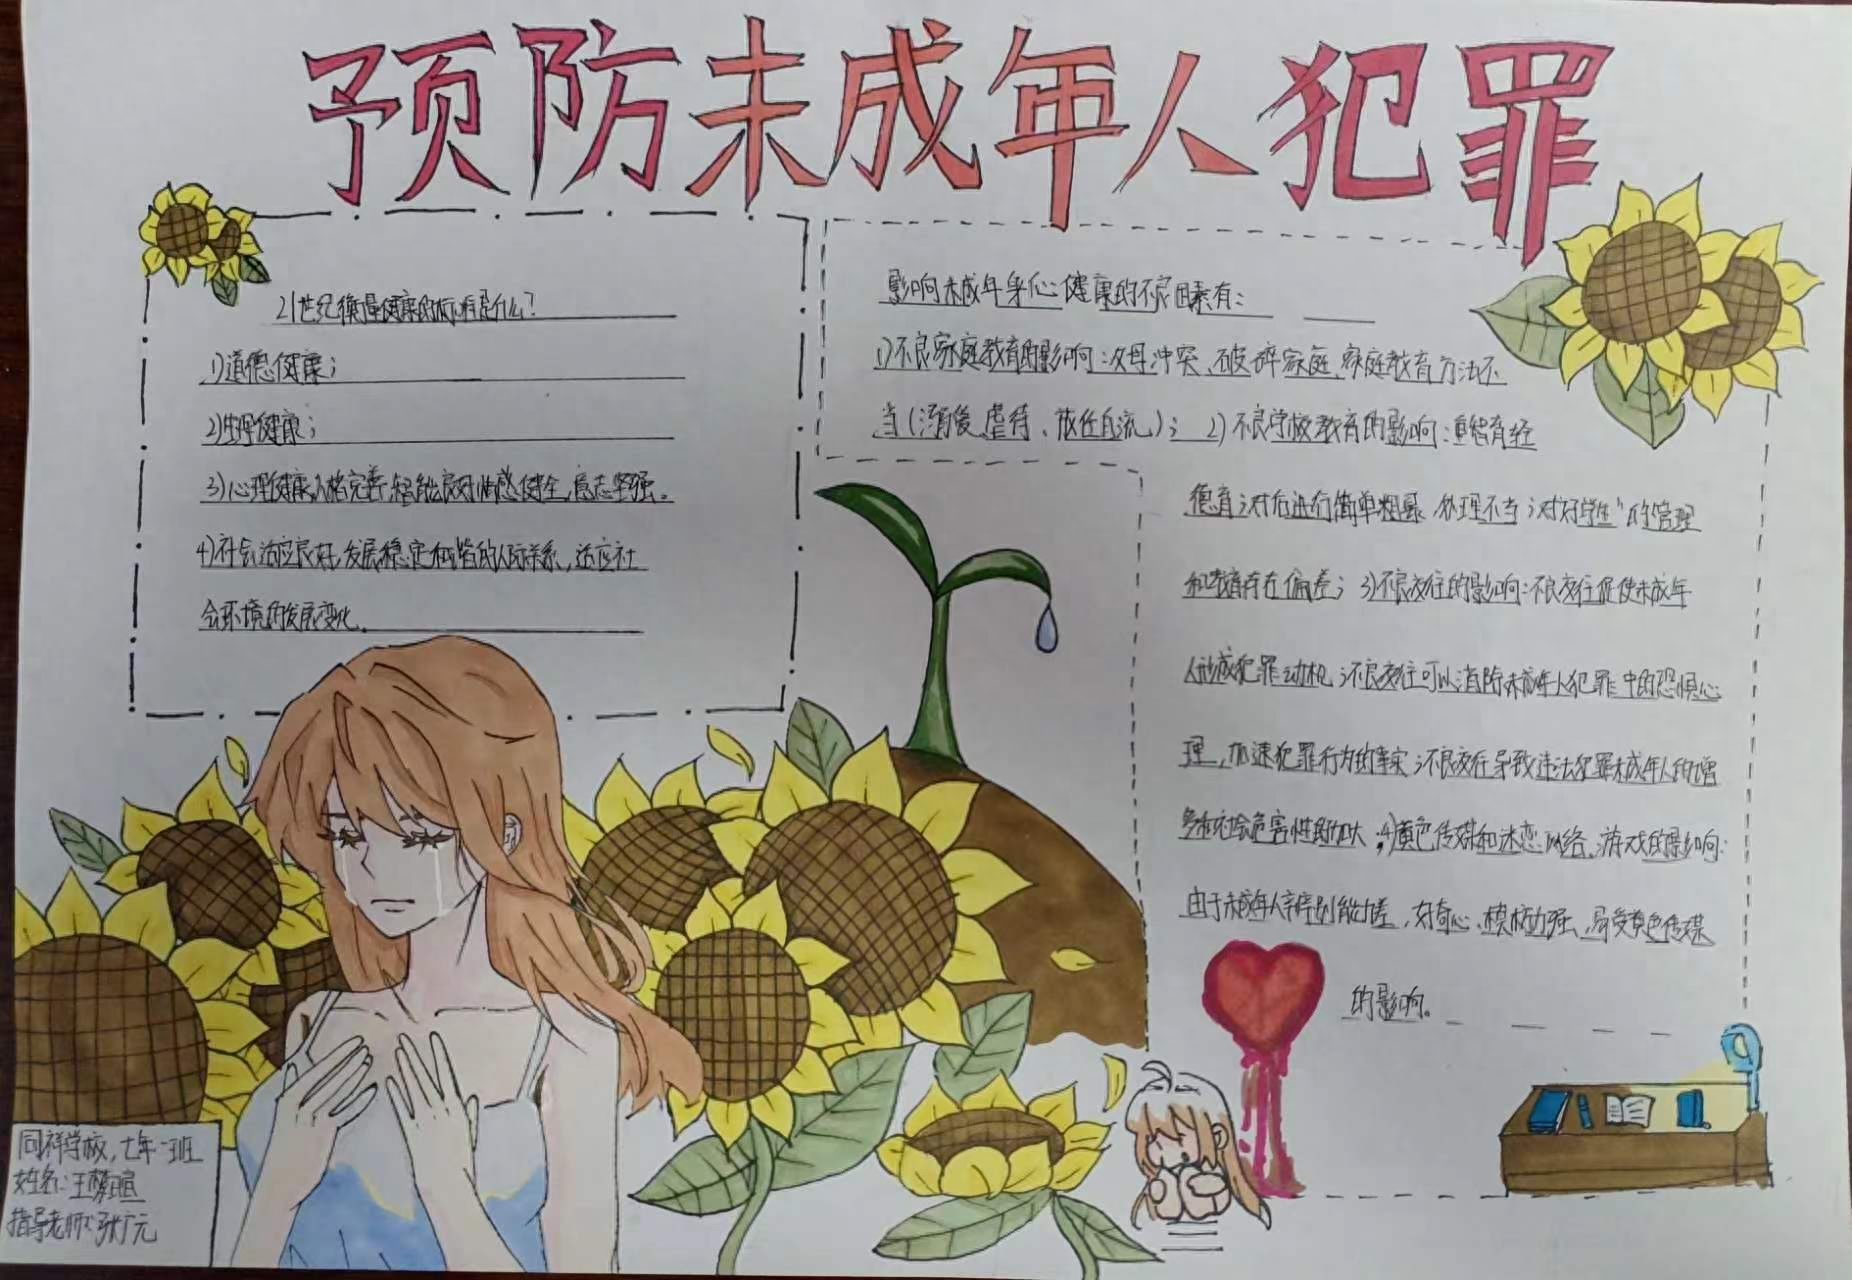 预防未成年人犯罪
21世纪衡量健康的标准是什么？
1)道德健康；
2)生理健康；
3)心理健康,人格完善,智能良好,情感健全,意志坚强。
4)社会适应良好,发展稳定和谐的人际关系,适应社
会环境的发展变化。
影响未成年身心健康的不良因素有：
1)不良家庭教育的影响：父母冲突、破碎家庭、家庭教育方法不
当（溺爱、虐待、放任自流）；2)不良学校教育的影响：重智育轻
德育；对后进行简单粗暴、处理不当；对"好学生"的管理
和教育存在偏差；3)不良交往的影响：不良交往促使未成年
人形成犯罪动机；不良交往可以消除未成年人犯罪中的恐惧心
理，加速犯罪行为的事实；不良交往导致违法犯罪未成年人的增
多和社会危害性的加大；4)黄色传媒和迷恋网络、游戏的影响：
由于未成年人辨别能力差，好奇心、模仿力强，易受黄色传媒
的影响。
同祥学校，七年一班
姓名：王
指导老师：张广元